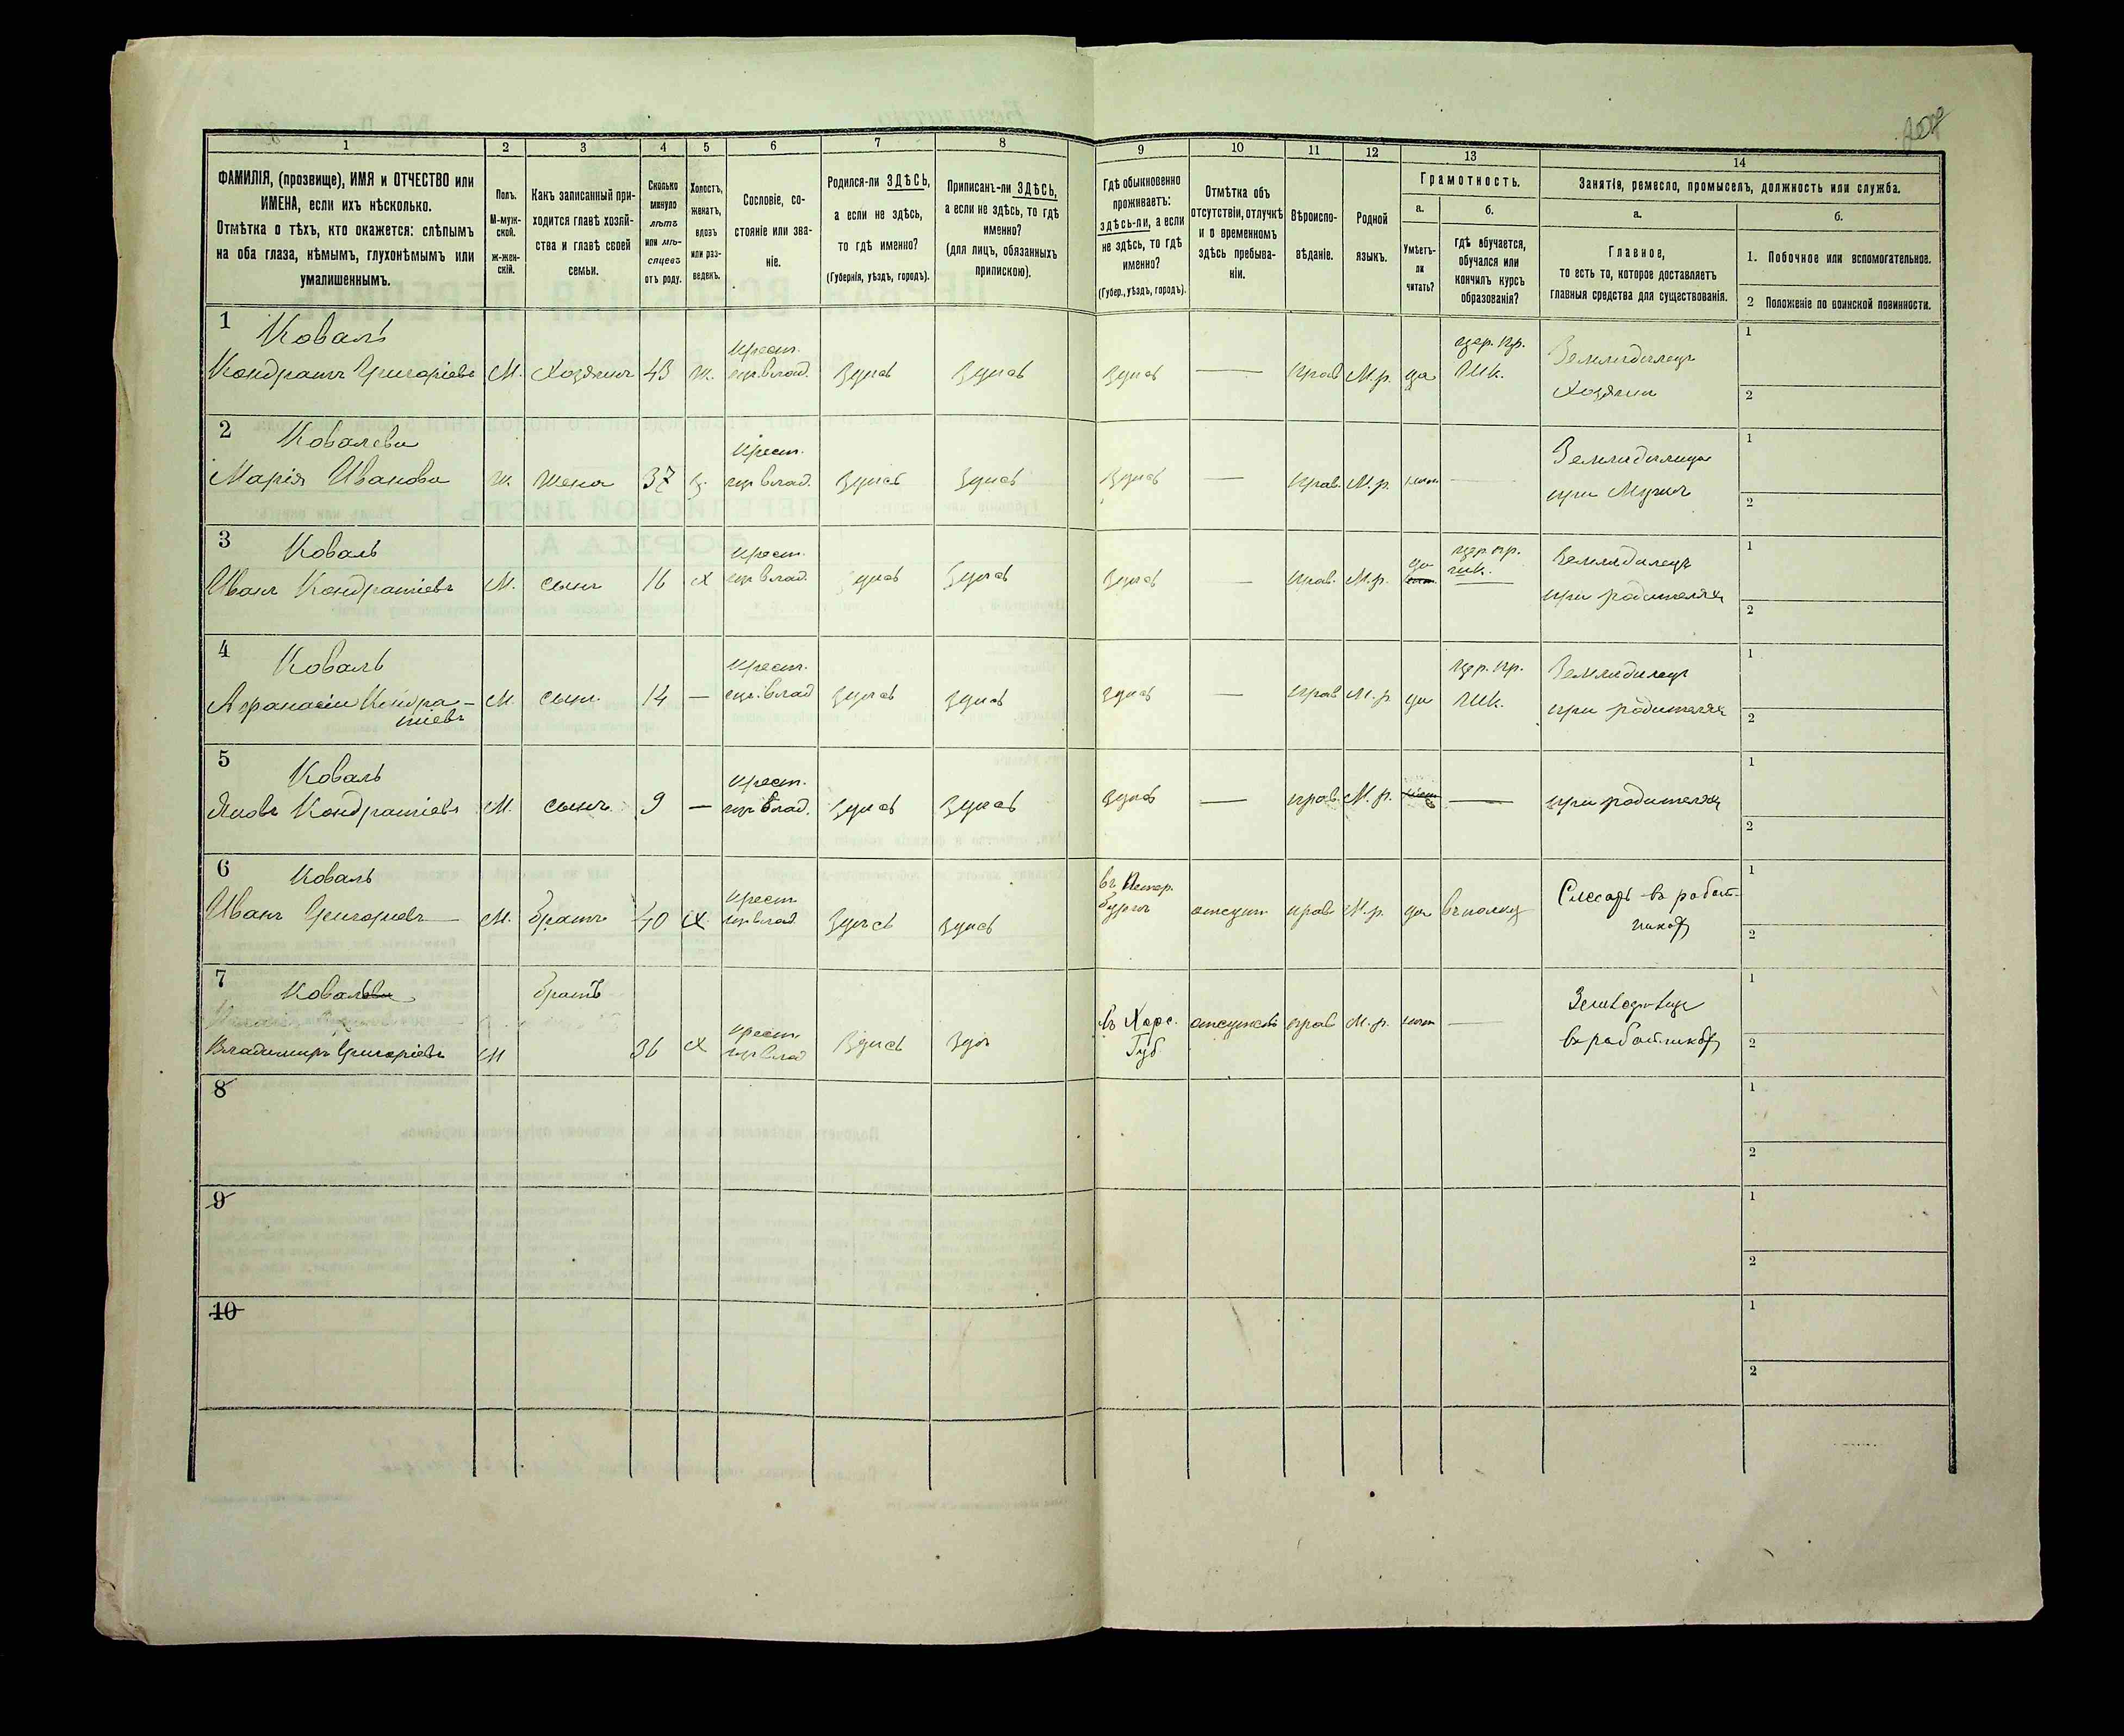 1
2
3
4
5
6
7
8
9
10
11
12
13
14
ФАМИЛІЯ, (прозвище), ИМЯ и ОТЧЕСТВО или
ИМЕНА, если ихъ нѣсколько.
Отмѣтка о тѣхъ, кто окажется: слѣпымъ
на оба глаза, нѣмымъ, глухонѣмымъ или
умалишеннымъ.
Полъ.
М-муж-
ской.
Ж-жен-
скій.
Какъ записанный при-
ходится главѣ хозяй-
ства и главѣ своей
семьи.
Сколько
минуло
лѣтъ
или мѣ-
сяцевъ
отъ роду.
Холостъ,
женатъ,
вдовъ
или раз-
веденъ.
Сословіе, со-
стояніе или зва-
ніе.
Родился-ли ЗДѢСЬ,
а если не здѣсь,
то гдѣ именно?
(Губернія, уѣздъ, городъ).
Приписанъ-ли ЗДѢСЬ,
а если не здѣсь, то гдѣ
именно?
(для лицъ, обязанныхъ
припискою).
Гдѣ обыкновенно
проживаетъ:
здѣсь-ли, а если
не здѣсь, то гдѣ
именно?
(Губер., уѣздъ, городъ).
Отмѣтка объ
отсутствіи, отлучкѣ
и о временномъ
здѣсь пребыва-
ніи.
Вѣроиспо-
вѣданіе.
Родной
языкъ.
Грамотность.
а.
Умѣетъ-
ли
читать?
б.
гдѣ обучается,
обучался или
кончилъ курсъ
образованія?
Занятіе, ремесло, промыселъ, должность или служба.
а.
Главное,
то есть то, которое доставляетъ
главныя средства для существованія.
б.
1. Побочное или вспомогательное.
2 Положеніе по воинской повинности.
1 Коваль
Кондратъ Григоріевъ М. Хозяинъ 43 ж. крест. здѣсь здѣсь здѣсь — прав М.р. да цер. пр. шк. Земледѣлецъ
Хозяин
1
2
2 Ковалева
Марія Иванова ж. жена 37 з. крест. здѣсь здѣсь здѣсь — прав. М.р. нѣтъ — Земледѣлица
при мужѣ
1
2
3 Коваль
Иванъ Кондратіевъ М. сынъ 16 х крест. здѣсь здѣсь здѣсь — прав. М.р. да цер. пр. шк. Земледѣлецъ
при родителях
1
2
4 Коваль
Афанасій Кондра-
тіевъ М. сынъ. 14 — крест. здѣсь здѣсь здѣсь — прав М.р да цер. пр. шк. Земледѣлецъ
при родителях
1
2
5 Коваль
Яковъ Кондратіевъ М. сынъ. 9 — крест. здѣсь здѣсь здѣсь — прав М.р. нѣтъ — при родителях
1
2
6 Коваль
Иванъ Григорьевъ М. братъ 40 х. крест здѣсь здѣсь въ Петер-
бургѣ отсут прав М.р. да въ полку Слесарь в работ-
никах
1
2
7 Коваль братъ
Владимиръ Григоріевъ М 36 х крест здѣсь здѣ въ Харс.
Губ отсутств прав М.р. нѣт — Земледѣлец
в работниках
1
2
8
1
2
9
1
2
10
1
2